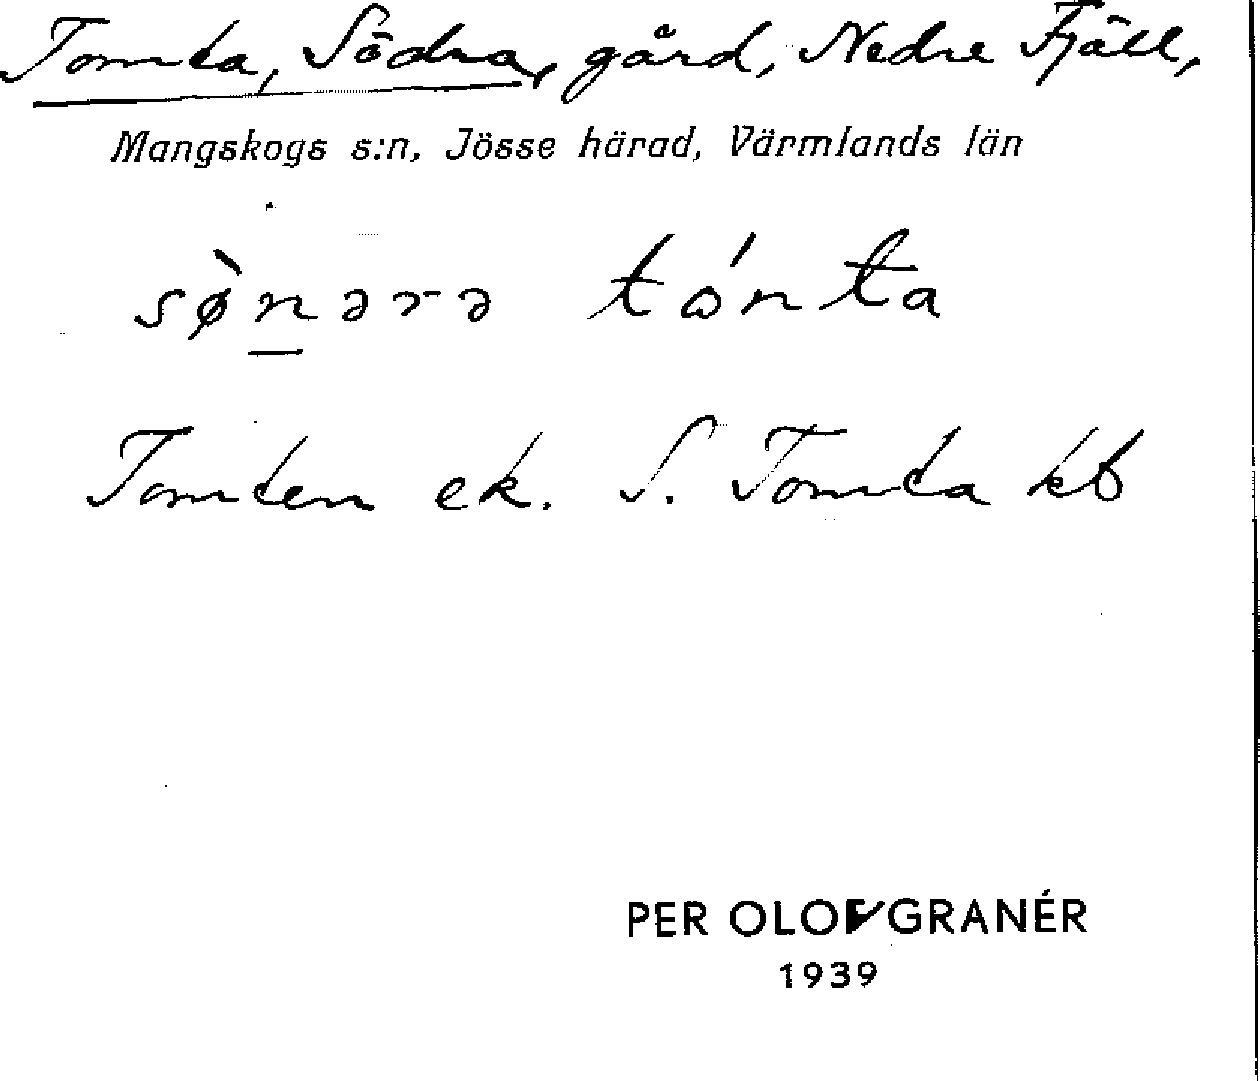 Tomta, Södra, gård, Nedre Fjäll,
Mangskogs s:n, Jösse härad, Värmlands län
sø̀n̲ərə tónta
Tomten ek. S. Tomta kb
PER OLOF GRANÉR
1939